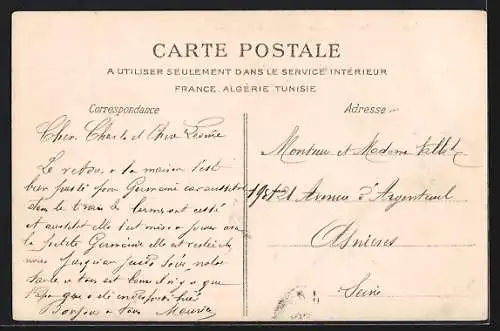 CARTE POSTALE
A UTILISER SEULEMENT DANS LE SERVICE INTÉRIEUR
FRANCE, ALGÉRIE TUNISIE
Correspondance
Adresse
Cher Charls et Chere
Le retour a la maison s'est
bien passé pour Germaine car aussitot
dans le train les larmes ont cessé
et aussitot elle s'est mise a jouer avec
la petite Germaine elle est restée chez
nous jusqu'au soir notre
tante a tous est bonne il n'y a que
Papa que
Bonjour a tous Maurice
Monsieur et Madame
Avenue d'Argenteuil
Asnières
Seine